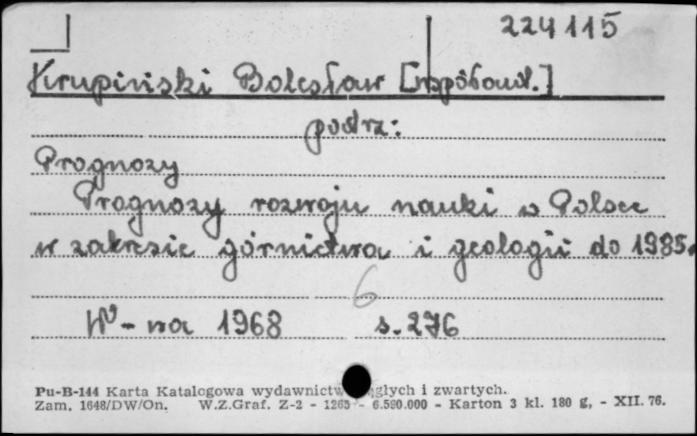 224115
Krupiński Bolesław [współaut.]
podrz:
Prognozy
Prognozy rozwoju nauki w Polsce
w zakresie górnictwa i geologii do 1985.
6
W-wa 1968 s. 276
Pu-B-144 Karta Katalogowa wydawnictw ciągłych i zwartych.
Zam. 1648/DW/On. W.Z.Graf. Z-2 - 1265 - 6.590.000 - Karton 3 kl. 180 g, - XII. 76.